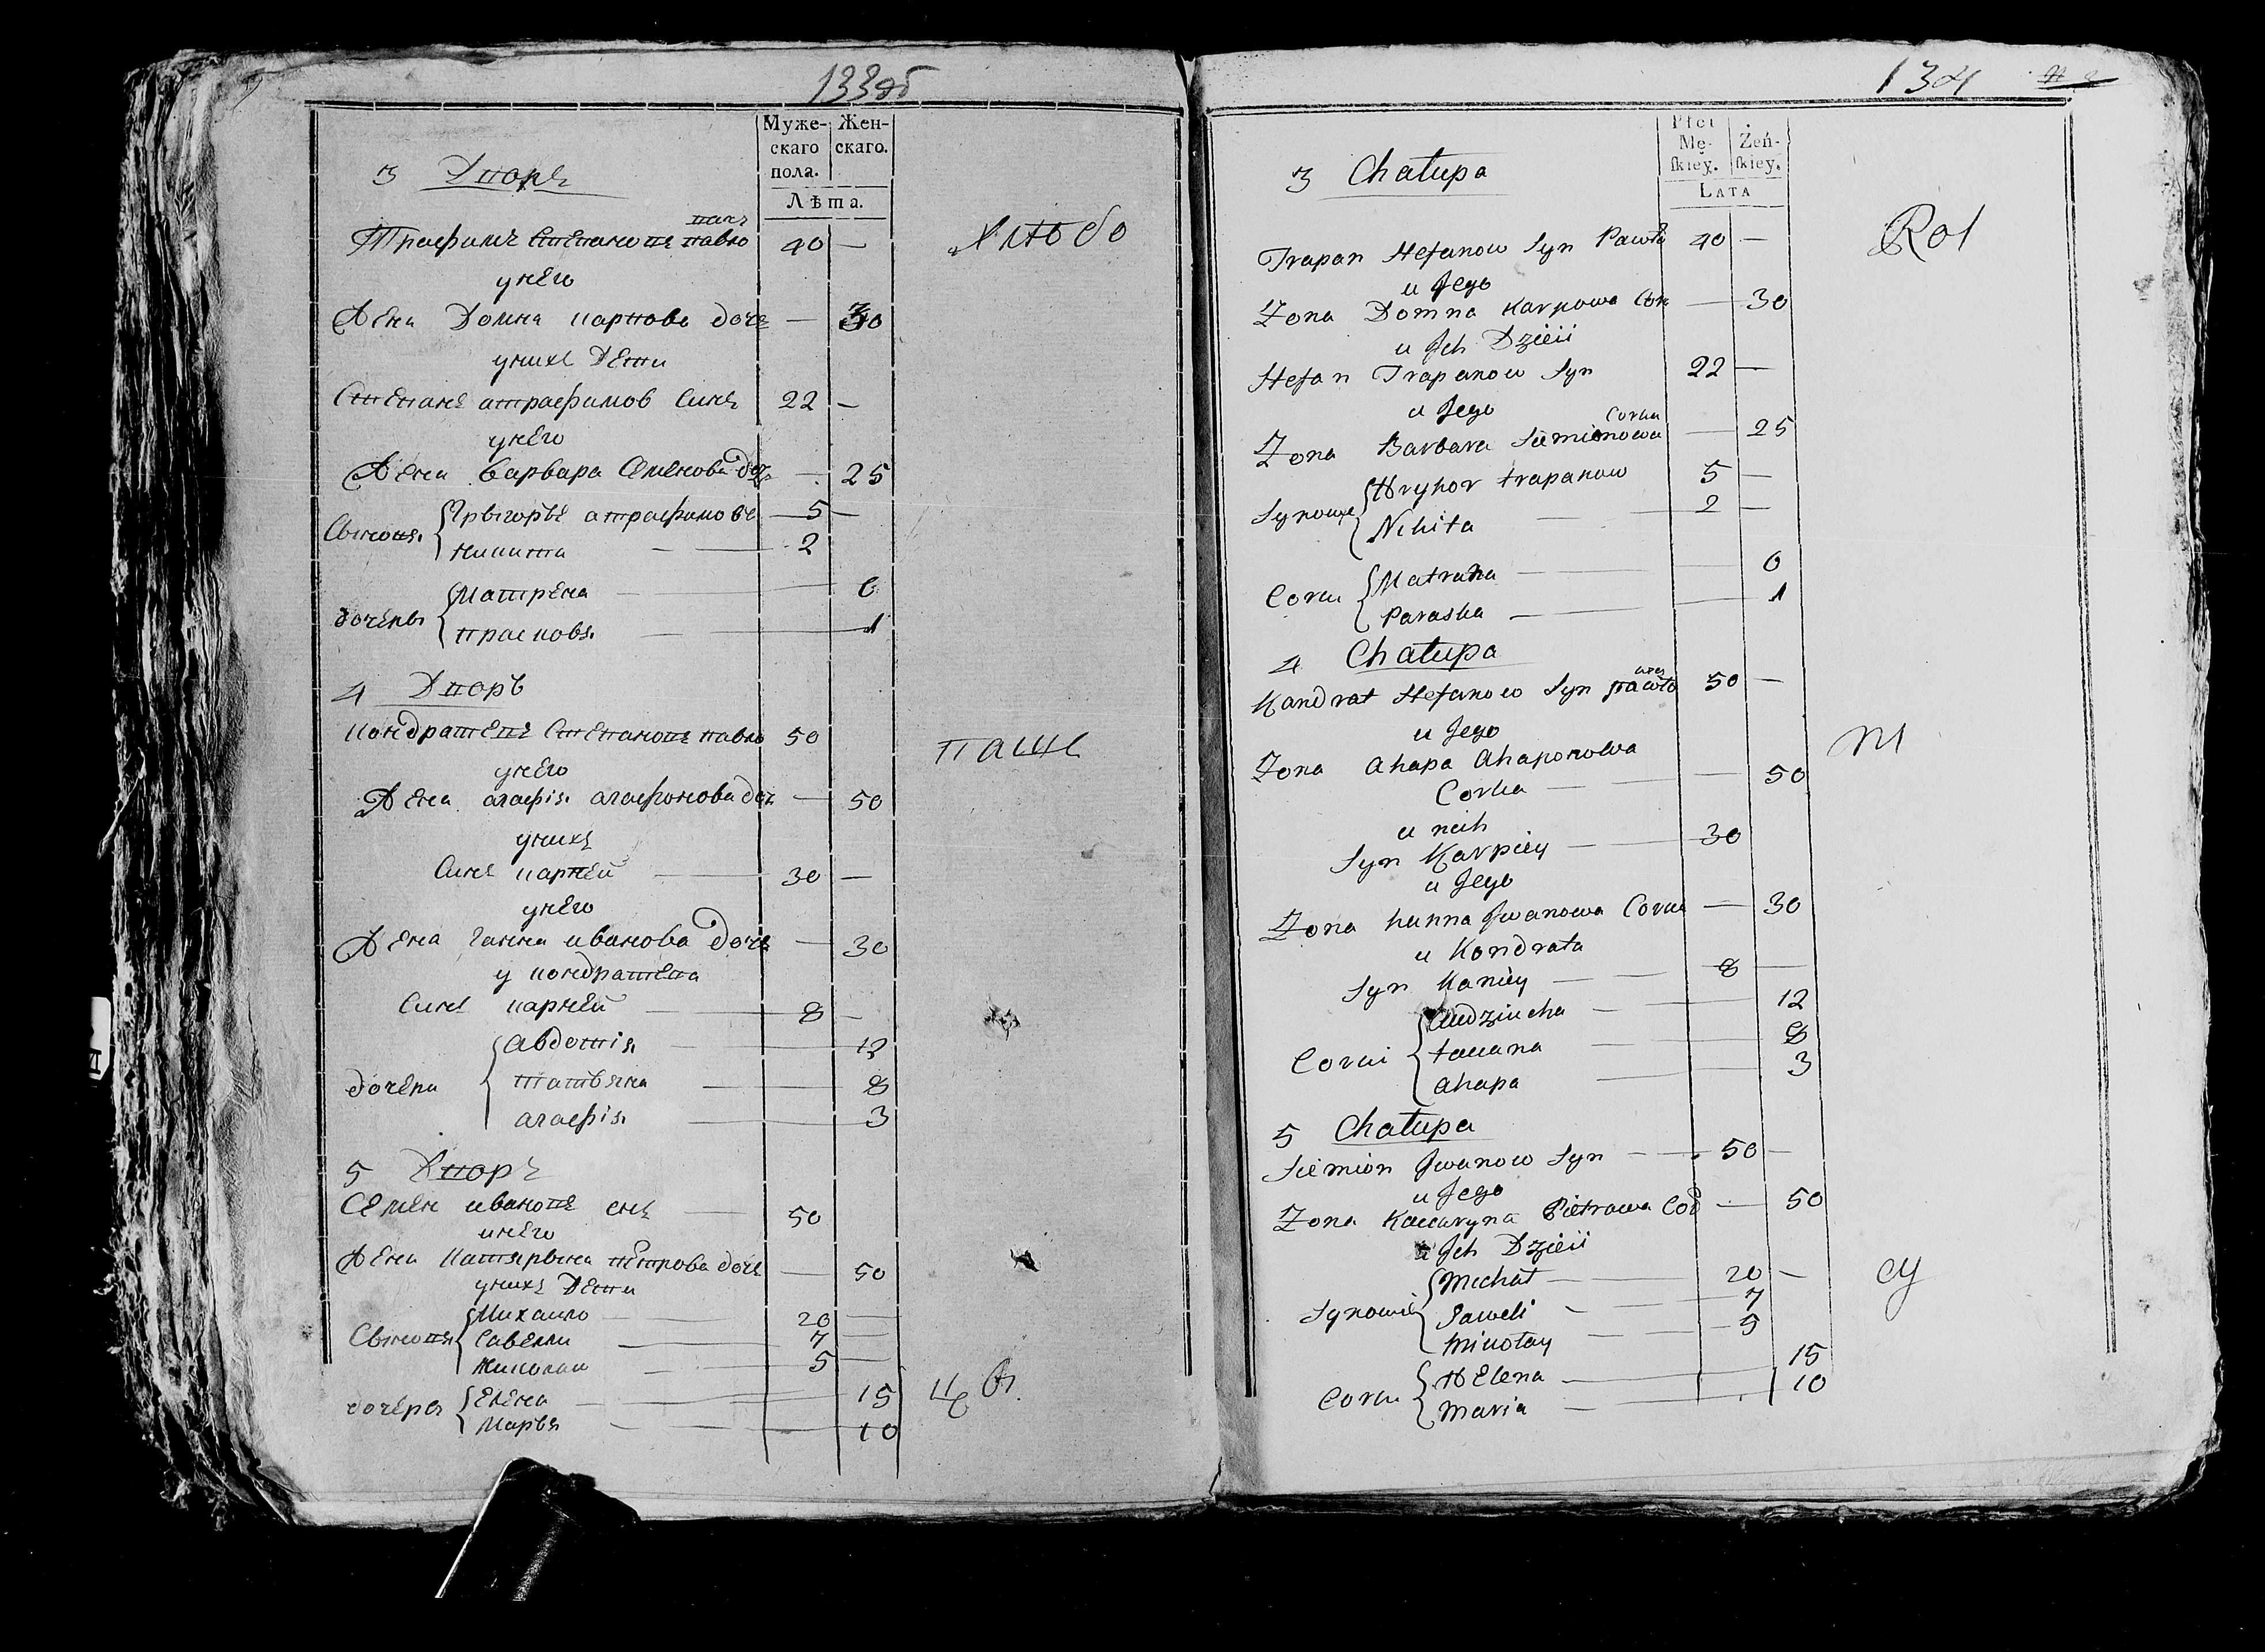 133об
Муже- Жен-
скаго скаго.
пола.
Лѣта.
3 Дворъ
повъ
Трафимъ Степановъ павло 40 —
унего
Жена Домна карпова дочь — 30
унихъ Дети
Степанъ атрафимов Синъ 22 —
унего
Жена варвара Семенова доч — 25
Сыновя Грыгоръй атрафимовъ — 5 —
никита — 2
дочеры Матрена — 6
прасковя — 1
4 Дворъ
кондратей Степановъ павло 50
унего
Жена агафія агафонова доч — 50
унихъ
Синъ карпей — 30 —
унего
Жена ганна иванова дочь — 30
у кондратея
Синъ карней — 8 —
дочери Авдотія — 12
татьяна — 8
агафія — 3
5 Дворъ
Семен ивановъ снъ — 50
инего
Жена Катярына петрова дочь — 50
унихъ Дети
Сыновя Михаило — 20 —
Савелли — 7 —
Николаи — 5 —
дочеры Елена — 15
Маръя — 10
Любо
паще
134
Płci
Mę- Żeń-
skiey. skiey.
LATA
3 Chałupa
Trapan Stefanow Syn Pawło 40 —
u Jego
Zona Domna Karpowa Cor — 30
u Jch Dzieii
Stefan Trapanow Syn 22 —
u Jego
Corka
Zona Barbara Siemionowa — 25
Synowie Hryhor trapanow 5 —
Nikita — 2 —
Corki Matrana — 6
Paraska — 1
4 Chałupa
Kandrat Stefanow Syn pawło 50 —
u Jego
Zona Ahapa Ahaponowa
Corka — 50
u nich
Syn Karpiey — 30
u Jego
Zona hanna Jwanowa Corka — 30
u Kondrata
Syn Karniey — 8 —
Corki Audziucha — 12
taciana — 8
ahapa — 3
5 Chałupa
Siemion Jwanow Syn — 50 —
u Jego
Zona Kaciaryna Pietrowa Cor — 50
u Jch Dzieii
Synowie Michał — 20 —
Saweli — 7
Mikołay — 5
Corki Helena — 15
Maria — 10
Rol
ni
cy